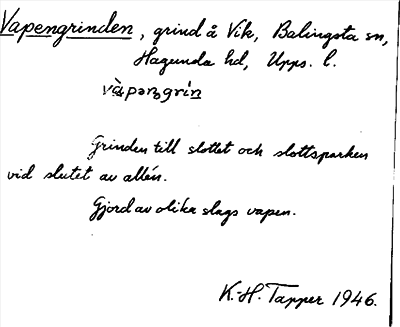 Vapengrinden, grind å Vik, Balingsta sn,
Hagunda hd, Upps. l.
vàpəŋgrín
Grinden till slottet och slottsparken
vid slutet av allén.
Gjord av olika slags vapen.
K.-H. Tapper 1946.